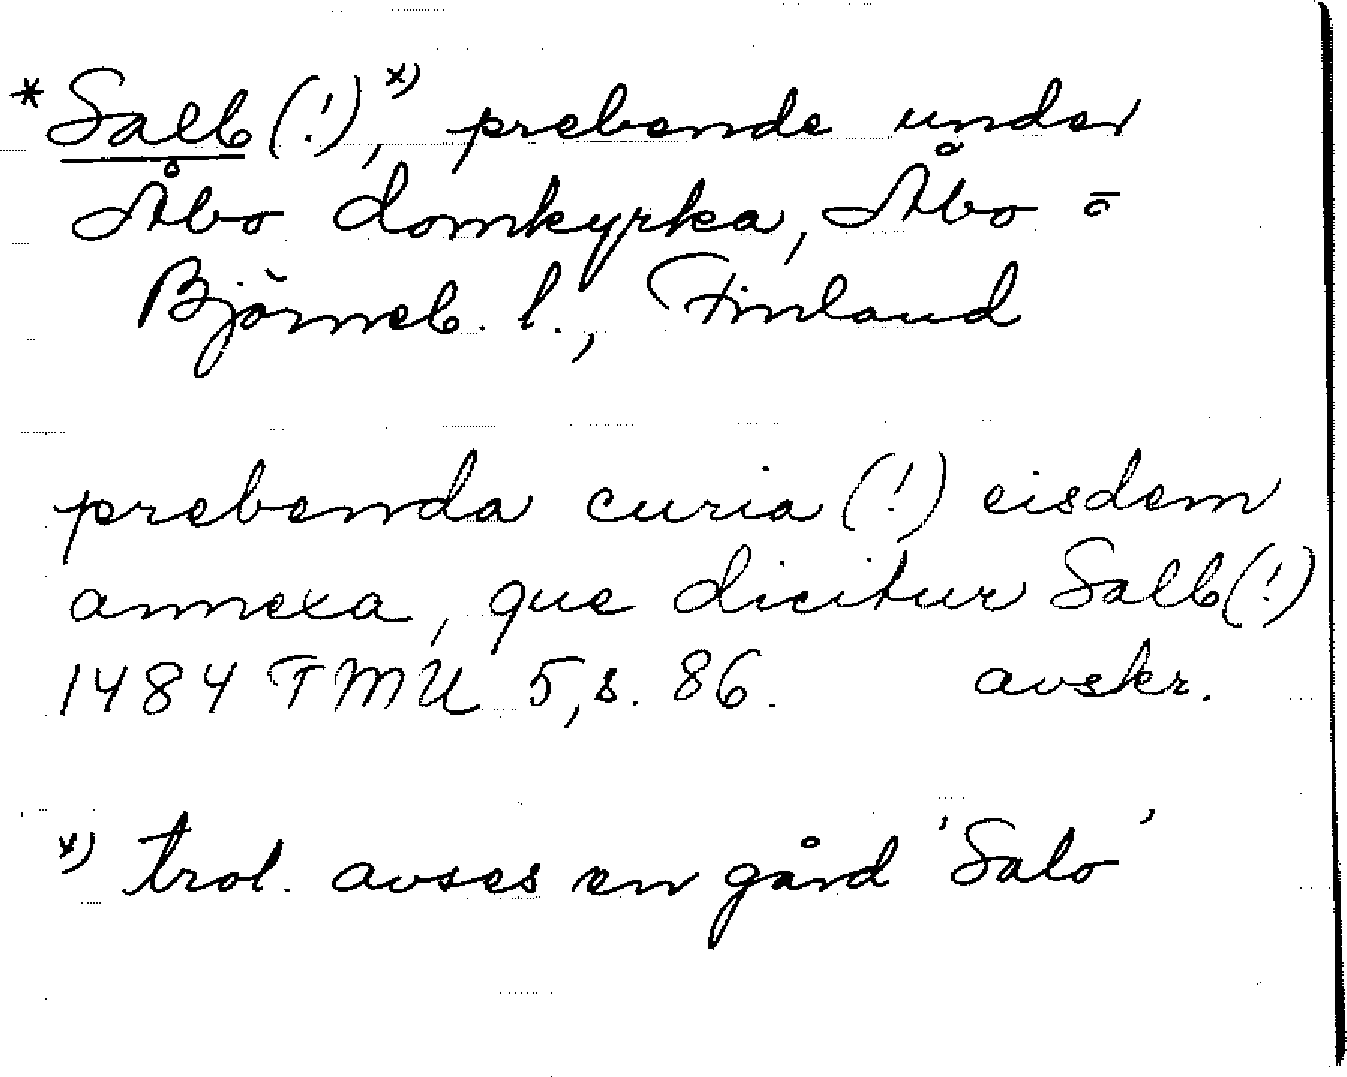 *Salb (!) x), prebende under
Åbo domkyrka, Åbo o
Björneb. l., Finland
prebenda curia (!) eisdem
annexa, que dicitur Salb (!)
1484 TMU 5, s. 86. avskr.
x) trol. avses en gård 'Salo'